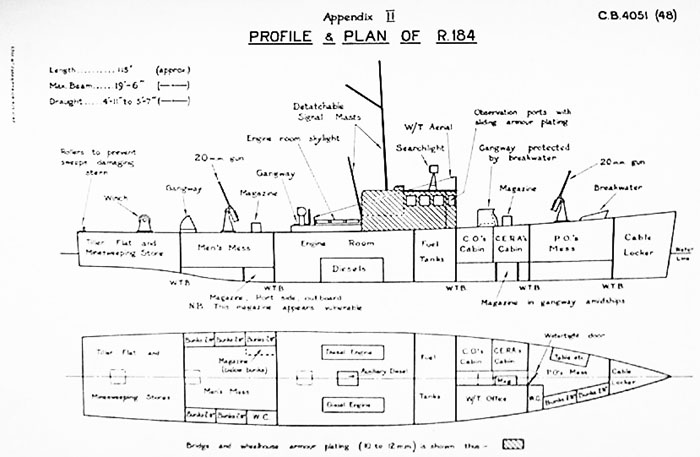 Appendix II
C.B.4051 (48)
PROFILE & PLAN OF R.184
Length.......... 115' (approx)
Max. Beam...... 19'-6" (——)
Draught.... 4'-11" to 5'-7" (——)
Detatchable
Signal Masts
Observation ports with
sliding armour plating
W/T Aerial
Searchlight
Gangway protected
by breakwater
Engine room skylight
Rollers to prevent
sweeps damaging
stern
20mm gun
Gangway
20mm gun
Gangway
Magazine
Magazine
Breakwater
Winch
Tiller Flat and
Minesweeping Stores
Men's Mess
Engine Room
Diesels
Fuel
Tanks
C.O.'s
Cabin
C.E.R.A's
Cabin
P.O.'s
Mess
Cable
Locker
Water
Line
W.T.B.
W.T.B.
W.T.B.
W.T.B.
W.T.B.
Magazine, Port side, outboard
N.B. This magazine appears vulnerable
Magazine in gangway amidships
Watertight door
Tiller Flat and
Minesweeping Stores
Bunks
Bunks
Bunks
Magazine
(below bunks)
Men's Mess
Bunks
Bunks
W.C.
Diesel Engine
Auxiliary Diesel
Diesel Engine
Fuel
Tanks
C.O's
Cabin
C.E.R.A's
Cabin
Mag
W/T Office
W.C.
Table etc.
P.O's Mess
Bunks
Bunks
Cable
Locker
Bridge and wheelhouse armour plating (10 to 12mm) is shown thus -